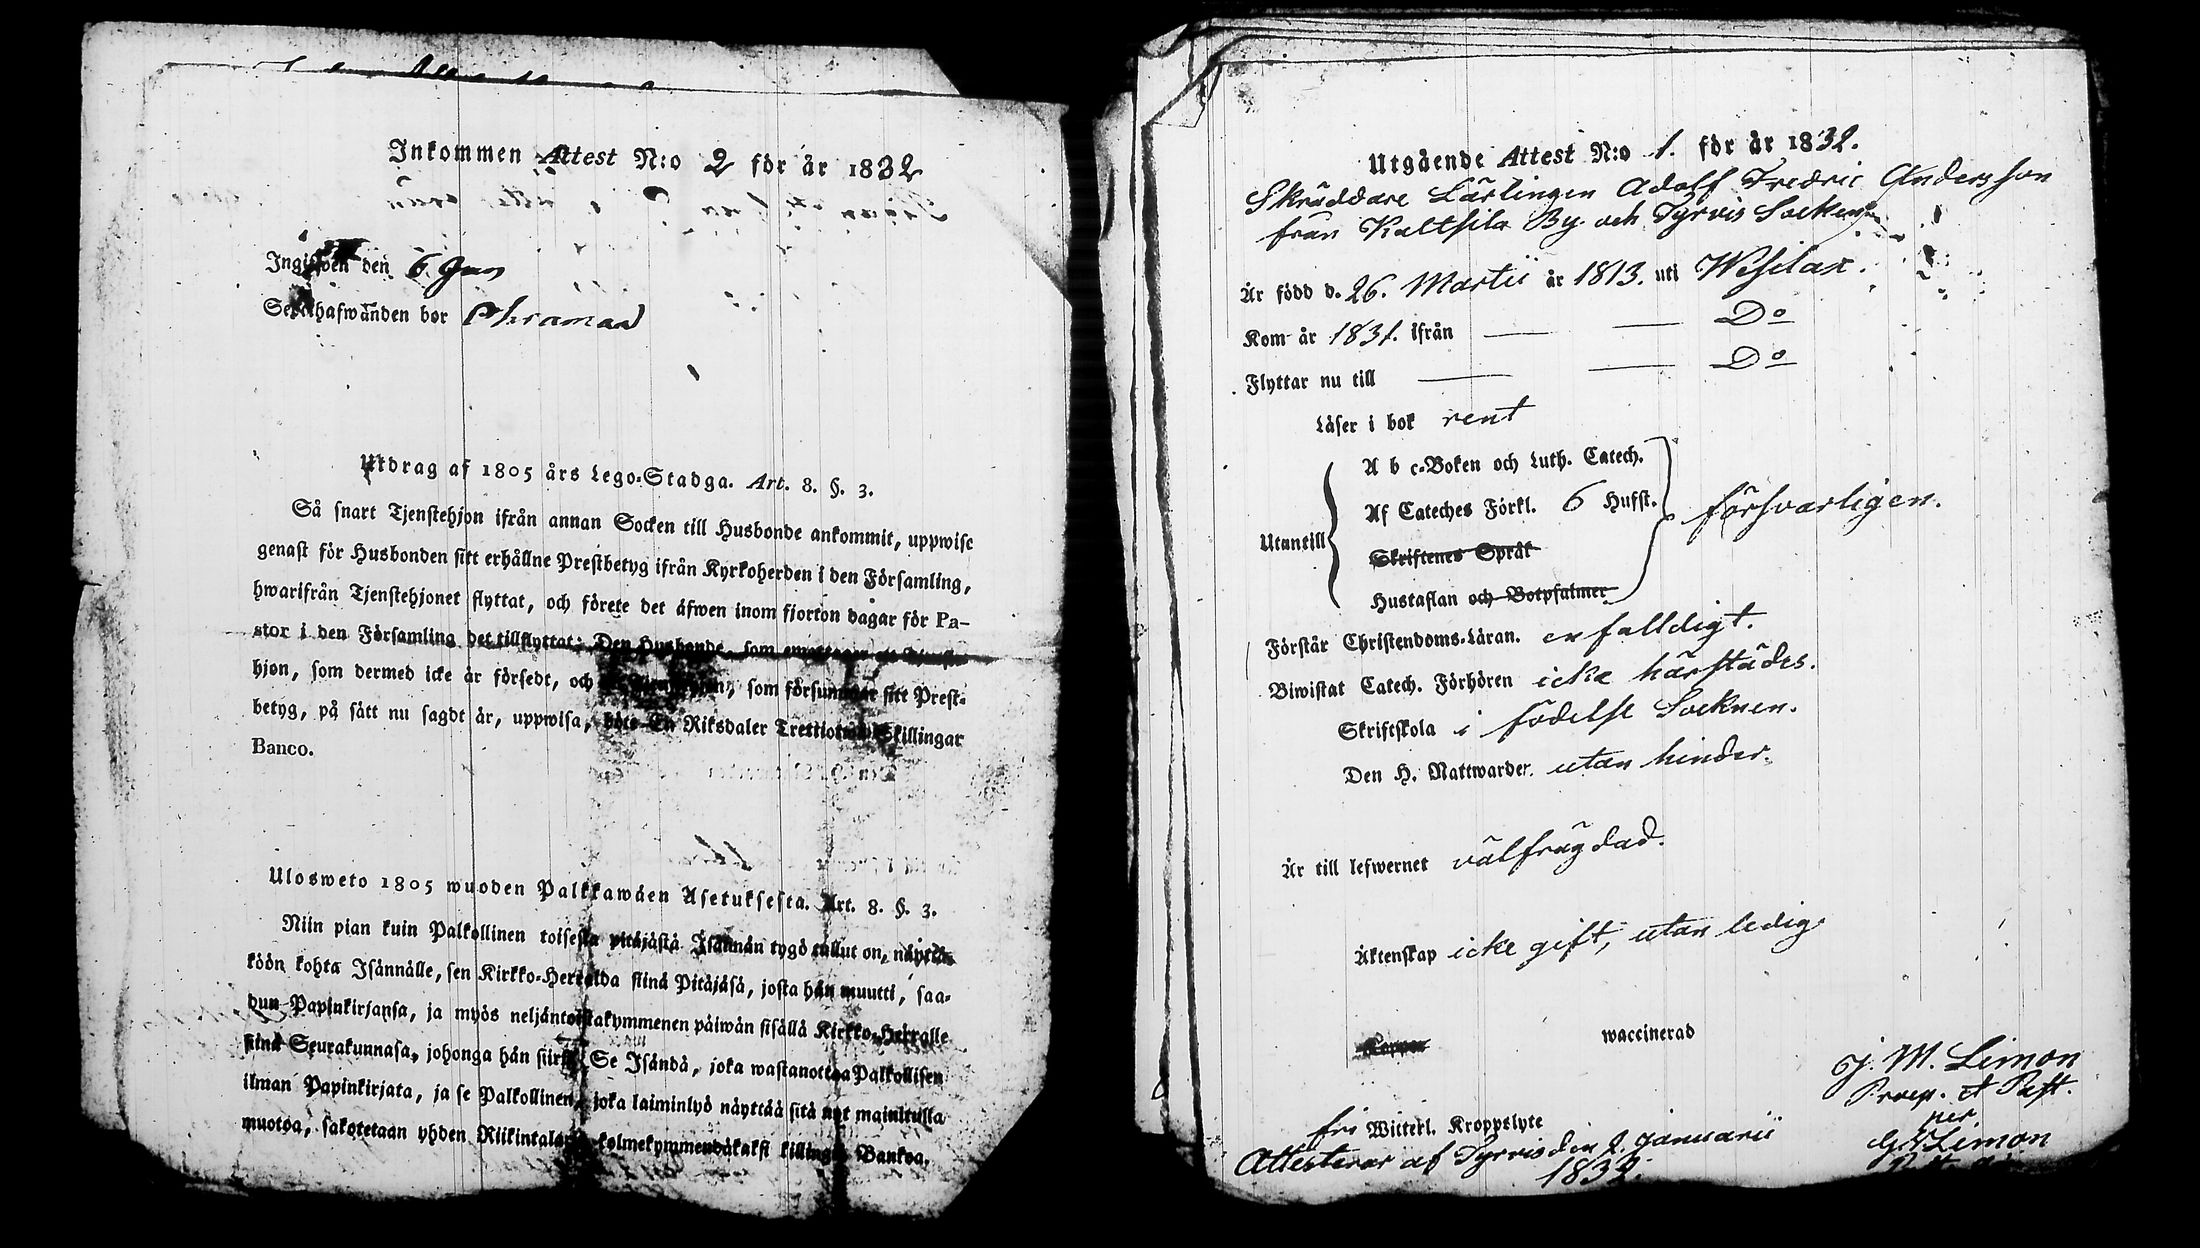 Inkommen Attest N:o 2 för år 1832
Ingifwen den 6 Jan
Sedelhafwanden bor
Utdrag af 1805 års Lego-Stadga. Art. 8. §. 3.
Så snart Tjenstehjon ifrån annan Socken till Husbonde ankommit, uppwise
genast för Husbonden sitt erhållne Prestbetyg ifrån Kyrkoherden i den Församling,
hwarifrån Tjenstehjonet flyttat, och förete det äfwen inom fjorton dagar för Pa-
stor i den Församling det tillflyttat; Den Husbonde, som
hjon, som dermed icke är försedt, och som försummar sitt Prest-
betyg, på sätt nu sagdt är, uppwisa, böte En Riksdaler Trettiotwå Skillingar
Banco.
Ulosweto 1805 wuoden Palkkawäen Asetuksesta. Art. 8. §. 3.
Niin pian kuin Palkollinen toisesta pitäjästä Isännän tygö tullut on, näyttä-
köön kohta Isännälle, sen Kirkko-Herralda siinä Pitäjäsä, josta hän muutti, saa-
dun Papinkirjansa, ja myös neljäntoistakymmenen päiwän sisällä Kirkko-Herralle
siinä Seurakunnasa, johonga hän siirsi. Se Isändä, joka wastanottaa Palkollisen
ilman Papinkirjata, ja se Palkollinen, joka laiminlyö näyttää sitä nyt mainitulla
muotoa, sakotetaan yhden Riikintalarin kolmekymmendäkaksi killingin Bankoa.
Utgående Attest N:o 1. för år 1832.
Skräddare Lärlingen Adolf Fredric Andersson
från Kaltsila By och Tyrvis Socken
Är född d. 26. Martii år 1813. uti Wesilax.
Kom år 1831. ifrån — — Do
Flyttar nu till — — Do
Läser i bok rent
A b c-Boken och Luth. Catech.
Af Cateches Förkl. 6 Hufst.
Utantill försvarligen.
Skriftenes Språk
Hustaflan och Botpsalmer
Förstår Christendoms-Läran. enfalldigt.
Biwistat Catech. Förhören icke härstädes.
Skriftskola i födelse Socknen.
Den H. Nattwarden utan hinder.
Är till lefwernet välfrägdad.
Äktenskap icke gift, utan ledig
Koppor waccinerad
J. M. Limon
Præp. et Past.
per
G. Limon
fri Witterl. Kroppslyte
Attesterar af Tyrvis den 2. Januarii
1832.